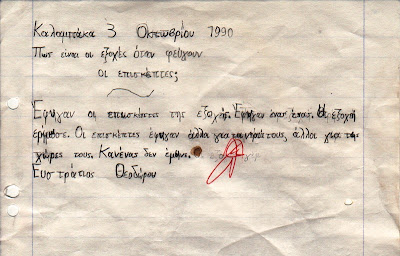 Καλαμπάκα 3 Οκτωβρίου 1990
Πως είναι οι εξοχές όταν φεύγουν
οι επισκέπτες;
Εφυγαν οι επισκέπτες της εξοχής. Εφυγαν ένας ένας. Η εξοχή
ερήμωσε. Οι επισκέπτες έφυγαν άλλοι για τους, άλλοι για τις
χώρες τους. Κανένας δεν έμεινε.
Ευστράτιος Θεοδώρου